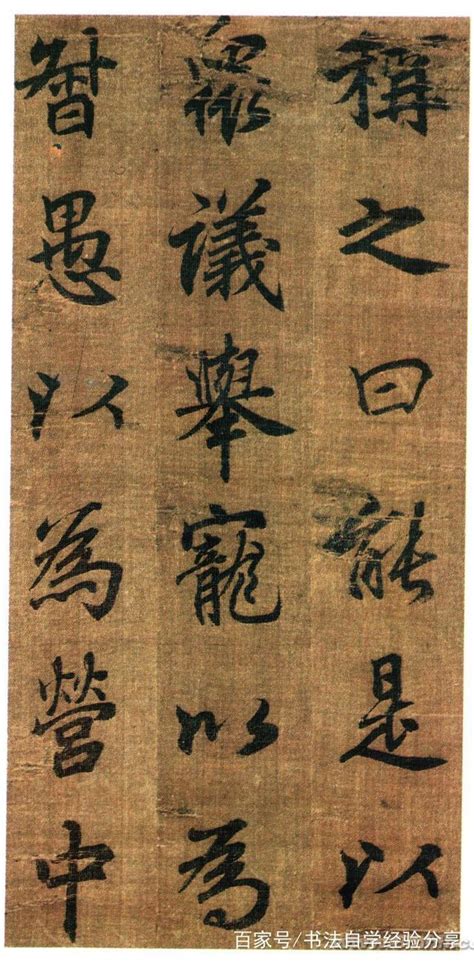 稱之曰能是以
眾議舉寵以為
督愚以為營中
百家号/书法自学经验分享